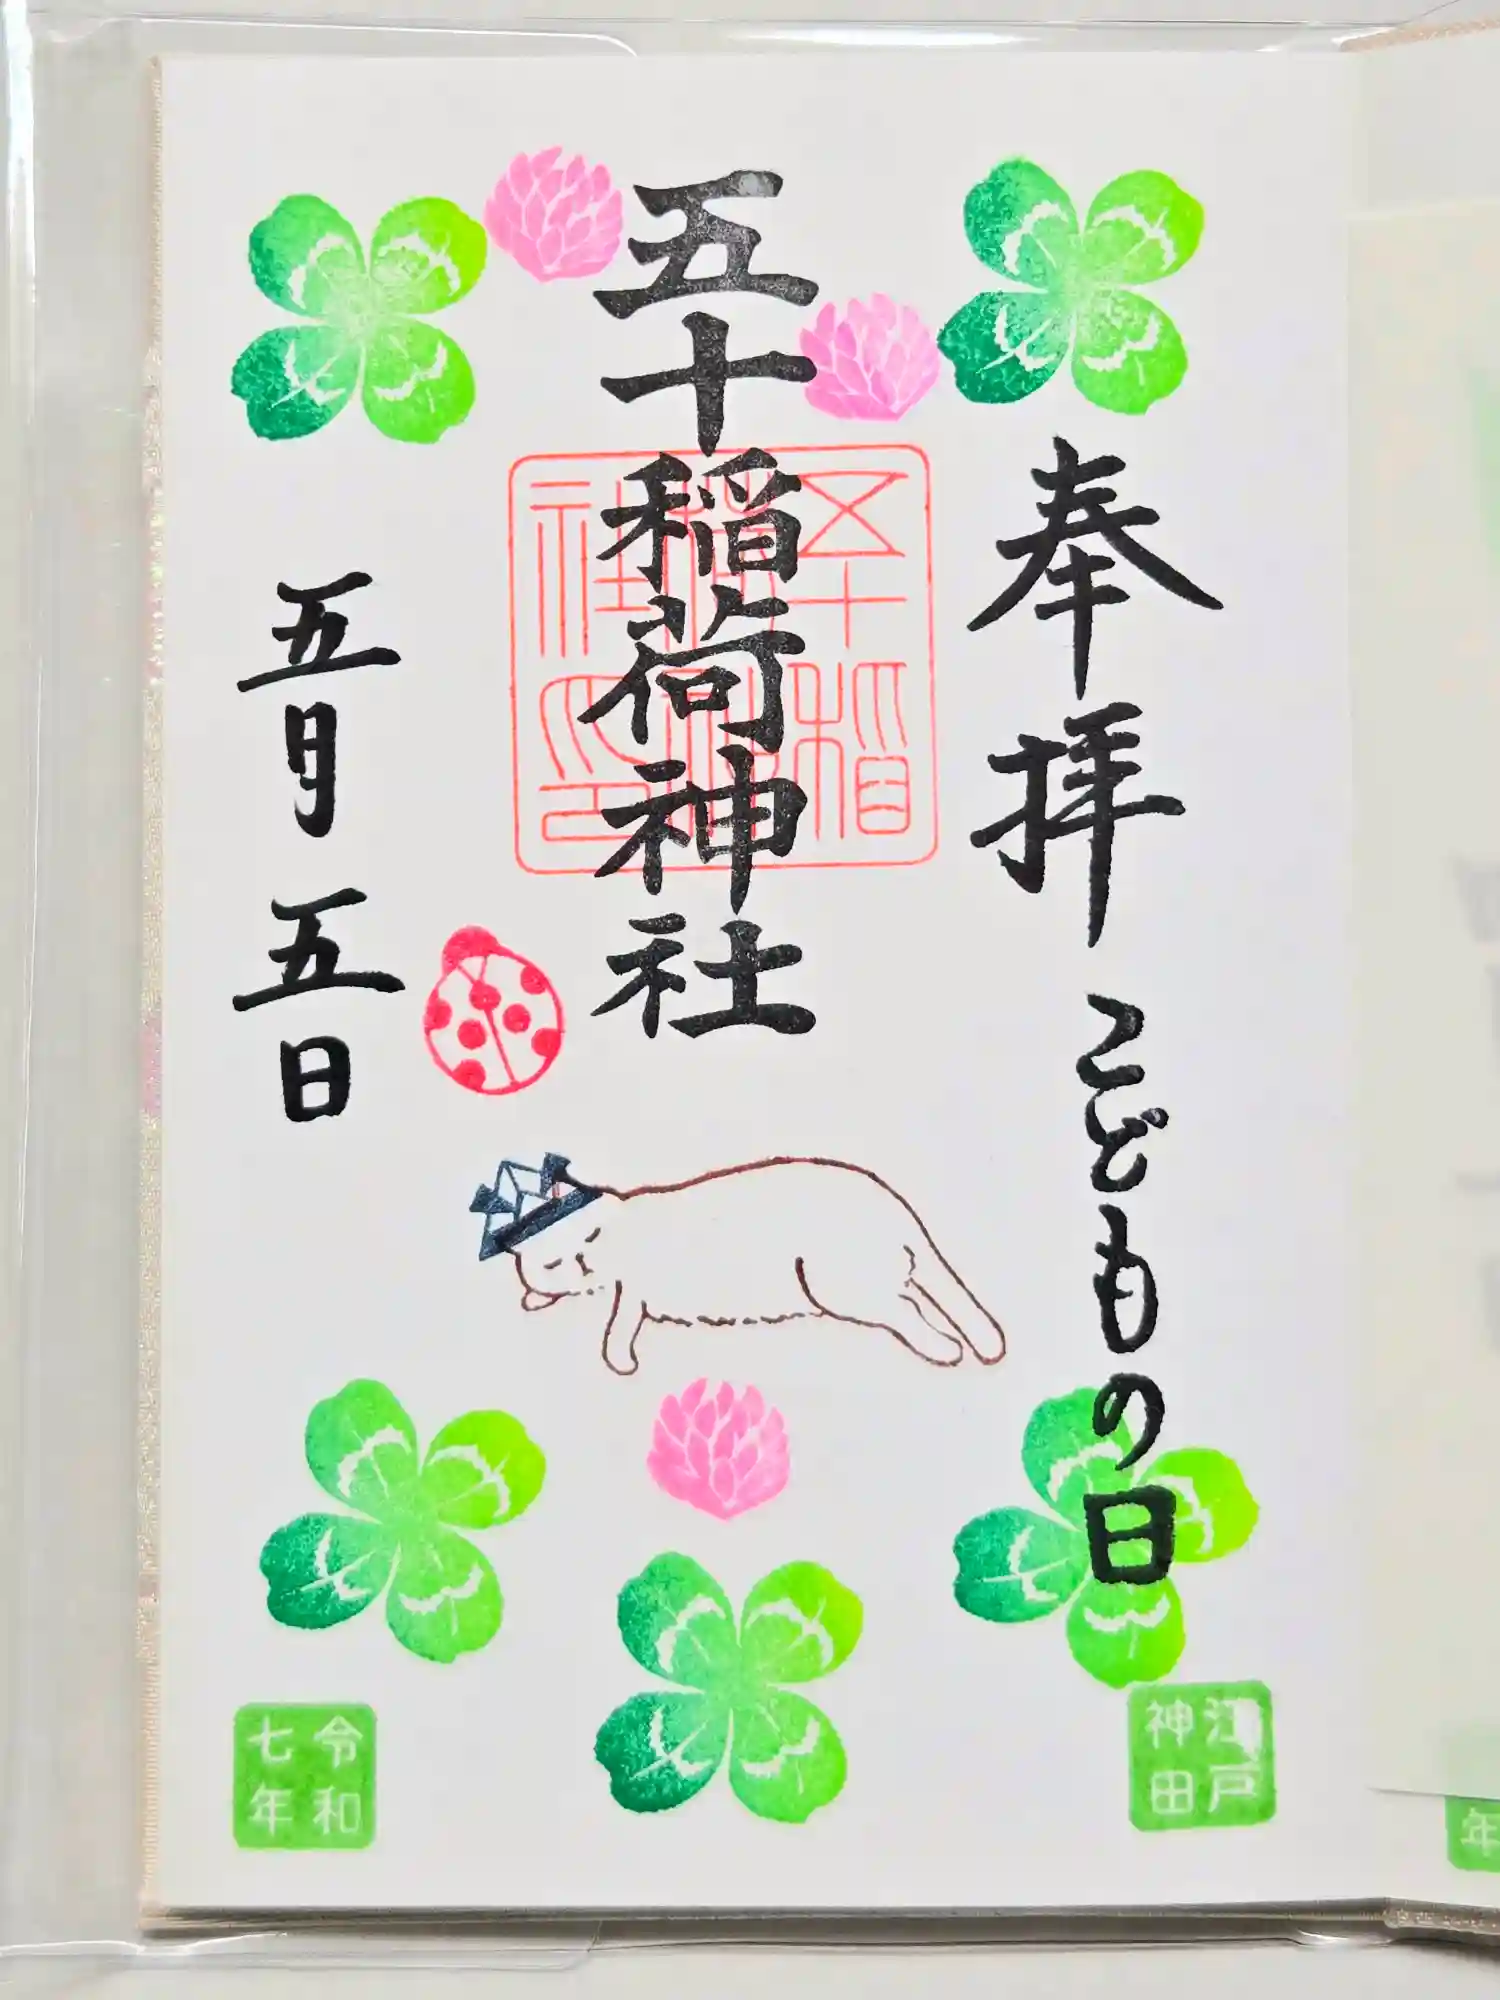 奉拝 こどもの日
五十稲荷神社
五十稲荷神社之印
五月五日
江戸
神田
令和
七年
年